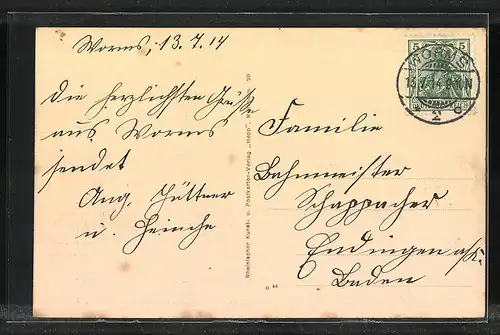 Worms, 13.7.14
Die herzlichsten Grüsse
aus Worms
sendet
Aug. Hüttner
u. Heinche
Familie
Bahnmeister
Schappacher
Endingen a/K.
Baden
Rheinischer Kunst- u. Postkarten-Verlag
5 5
WORMS
13.7.14
2